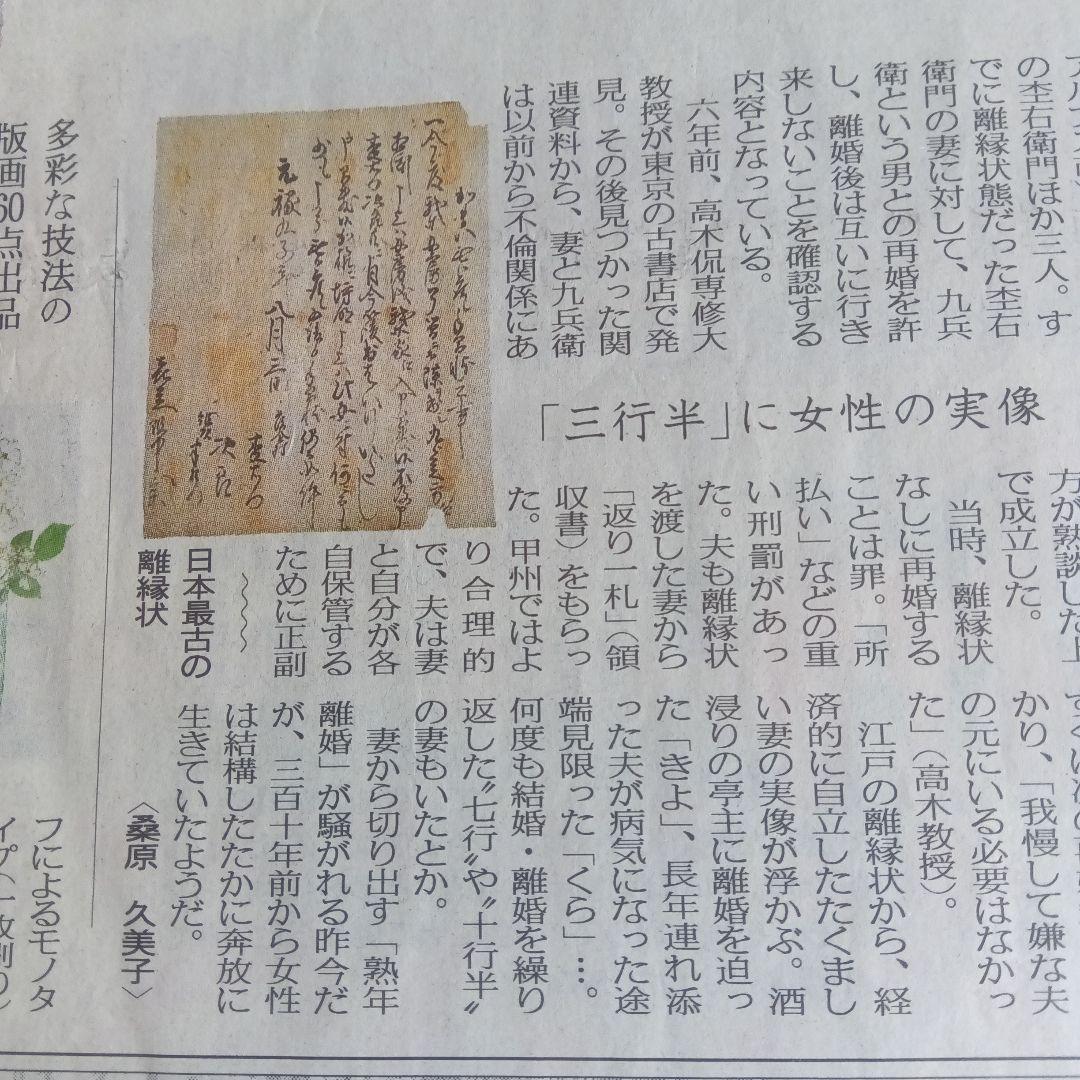 の杢右衛門ほか三人。す
でに離縁状態だった杢右
衛門の妻に対して、九兵
衛という男との再婚を許
し、離婚後は互いに行き
来しないことを確認する
内容となっている。
六年前、高木侃専修大
教授が東京の古書店で発
見。その後見つかった関
連資料から、妻と九兵衛
は以前から不倫関係にあ
「三行半」に女性の実像
方が熟談した上
で成立した。
当時、離縁状
なしに再婚する
ことは罪。「所
払い」などの重
い刑罰があっ
た。夫も離縁状
を渡した妻から
「返り一札」(領
収書)をもらっ
た。甲州ではよ
り合理的
で、夫は妻
と自分が各
自保管する
ために正副
かり、「我慢して嫌な夫
の元にいる必要はなかっ
た」(高木教授)。
江戸の離縁状から、経
済的に自立したたくまし
い妻の実像が浮かぶ。酒
浸りの亭主に離婚を迫っ
た「きよ」、長年連れ添
った夫が病気になった途
端見限った「くら」…。
何度も結婚・離婚を繰り
返した〝七行〟や〝十行半〟
の妻もいたとか。
妻から切り出す「熟年
離婚」が騒がれる昨今だ
が、三百十年前から女性
は結構したたかに奔放に
生きていたようだ。
〈桑原 久美子〉
日本最古の
離縁状
元禄九子年 八月三日
多彩な技法の
版画60点出品
フによるモノタ